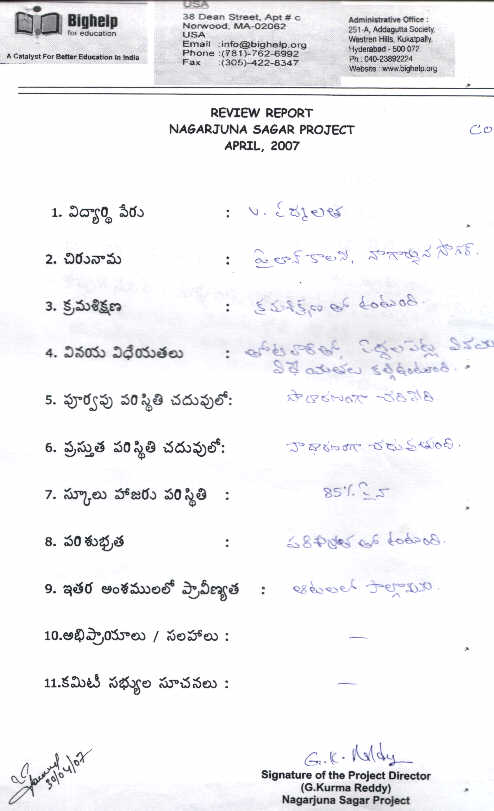 Bighelp
for education
A Catalyst For Better Education in India
USA
38 Dean Street, Apt # c
Norwood, MA-02062
USA
Email :info@bighelp.org
Phone :(781)-762-6992
Fax :(305)-422-8347
Administrative Office :
251-A, Addagutta Society,
Westren Hills, Kukatpally,
Hyderabad - 500 072
Ph : 040-23892224
Website : www.bighelp.org
REVIEW REPORT
NAGARJUNA SAGAR PROJECT
APRIL, 2007
CO
1. విద్యార్థి పేరు : V. పద్మలత
2. చిరునామ : పైలాన్ కాలని, నాగార్జున సాగర్.
3. క్రమశిక్షణ : క్రమశిక్షణ తో ఉంటుంది.
4. వినయ విధేయతలు : తోటివారితో, పెద్దలపట్ల వినయ
విధేయతలు కల్గిఉంటుంది.
5. పూర్వపు పరిస్థితి చదువులో: సాధారణంగా చదివేది
6. ప్రస్తుత పరిస్థితి చదువులో: సాధారణంగా చదువుతుంది.
7. స్కూలు హాజరు పరిస్థితి : 85% పైన
8. పరిశుభ్రత : పరిశుభ్రత తో ఉంటుంది.
9. ఇతర అంశములలో ప్రావీణ్యత : ఆటలలో పాల్గొనును.
10.అభిప్రాయాలు / సలహాలు : —
11.కమిటీ సభ్యుల సూచనలు : —
30/04/07
G.K. Reddy
Signature of the Project Director
(G.Kurma Reddy)
Nagarjuna Sagar Project